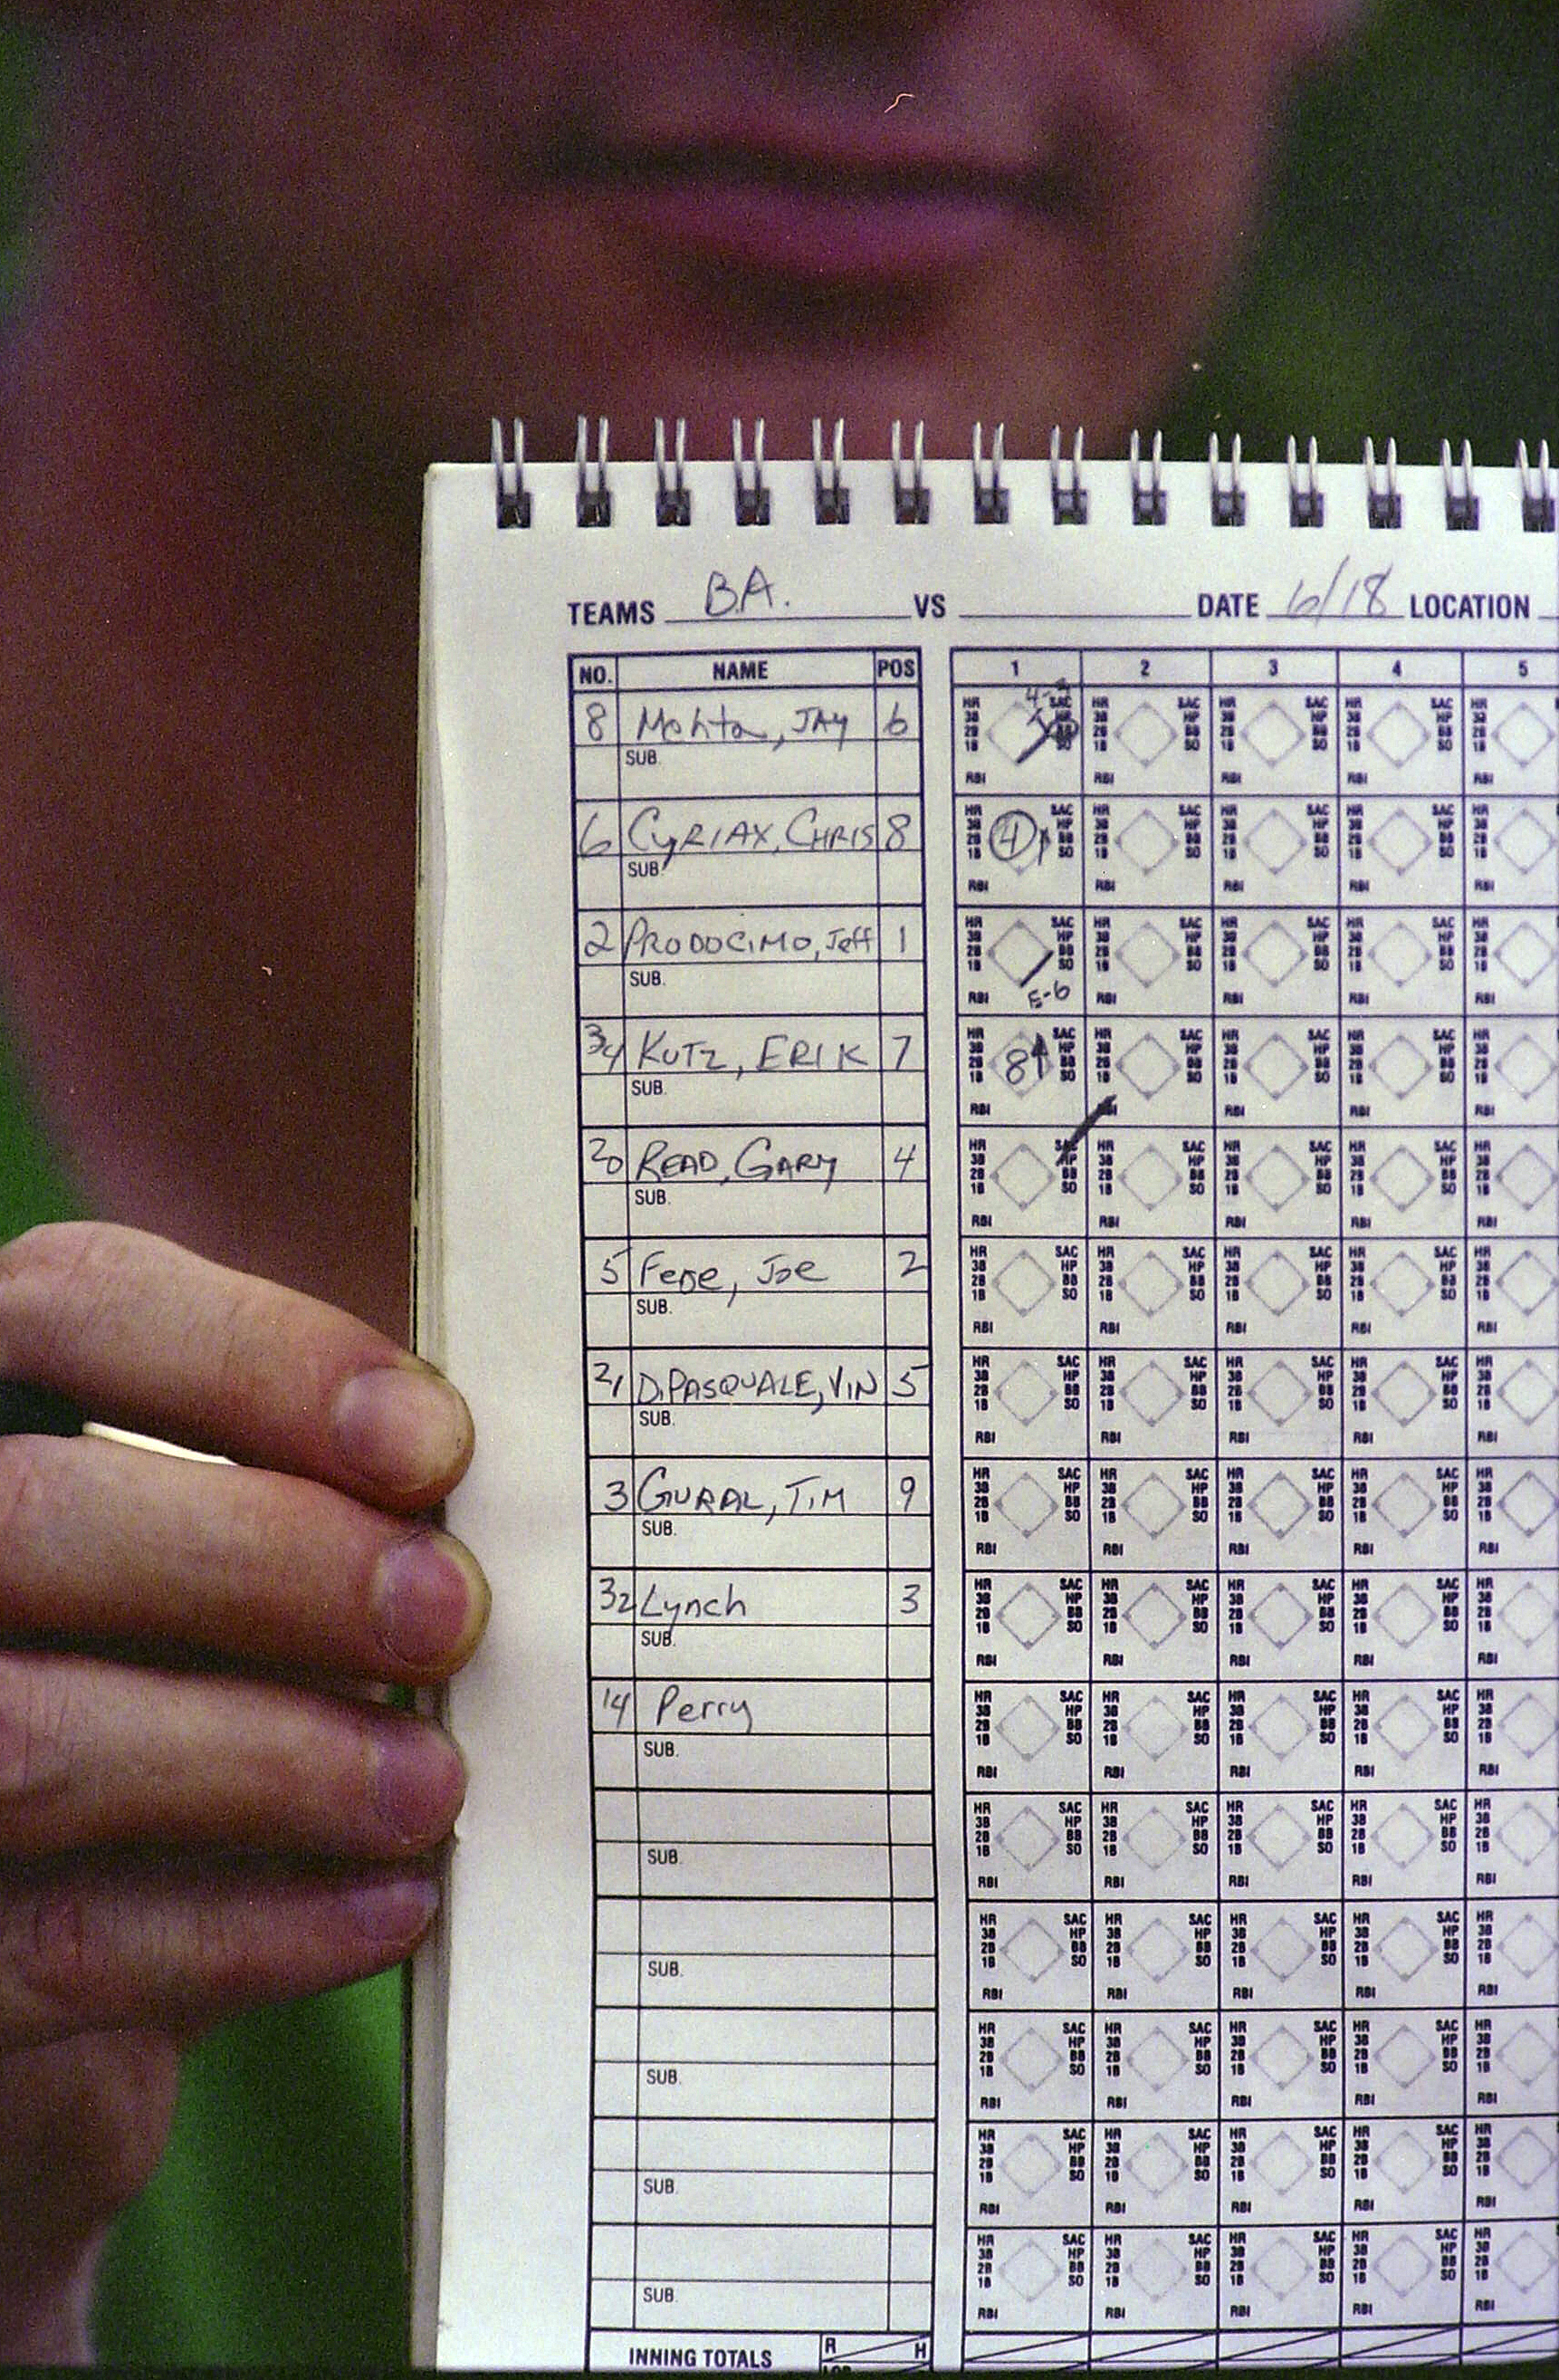 TEAMS B.A. VS DATE 6/18 LOCATION
NO. NAME POS 1 2 3 4 5
8 Mehta, JAY 6
SUB.
HR 3B 2B 1B SAC HP BB SO RBI
6 CYRIAX, CHRIS 8 4
SUB.
2 PRODOCIMO, Jeff 1 E-6
SUB.
34 KUTZ, ERIK 7 8
SUB.
20 READ, GARY 4
SUB.
5 Fede, Joe 2
SUB.
21 DiPASQUALE, VIN 5
SUB.
3 GURAL, TIM 9
SUB.
32 Lynch 3
SUB.
14 Perry
SUB.
SUB.
SUB.
SUB.
SUB.
SUB.
INNING TOTALS R H